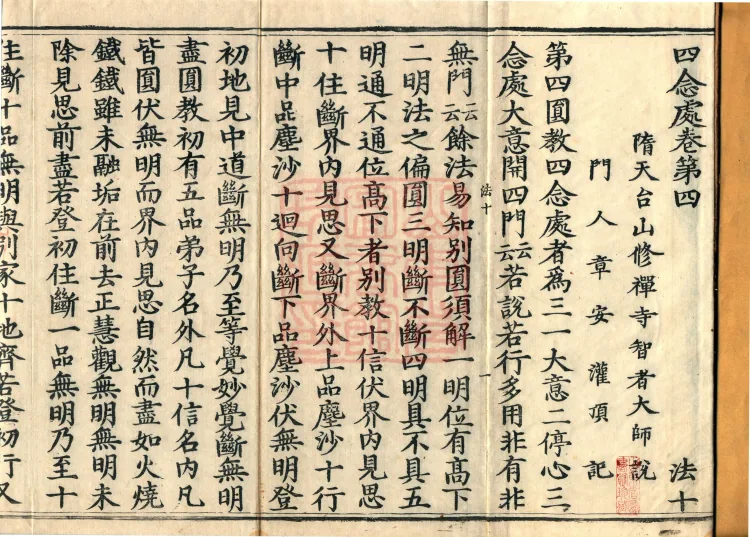 四念處卷第四 法十
隋天台山修禪寺智者大師說
門人章安灌頂記
第四圓教四念處者為三一大意二停心三
念處大意開四門云云若說若行多用非有非
法十 一
無門云云餘法易知別圓須解一明位有高下
二明法之偏圓三明斷不斷四明具不具五
明通不通位高下者別教十信伏界內見思
十住斷界內見思又斷界外上品塵沙十行
斷中品塵沙十迴向斷下品塵沙伏無明登
初地見中道斷無明乃至等覺妙覺斷無明
盡圓教初有五品弟子名外凡十信名內凡
皆圓伏無明而界內見思自然而盡如火燒
鐵鐵雖未融垢在前去正慧觀無明無明未
除見思前盡若登初住斷一品無明乃至十
住斷十品無明與別家十地齊若登初行又